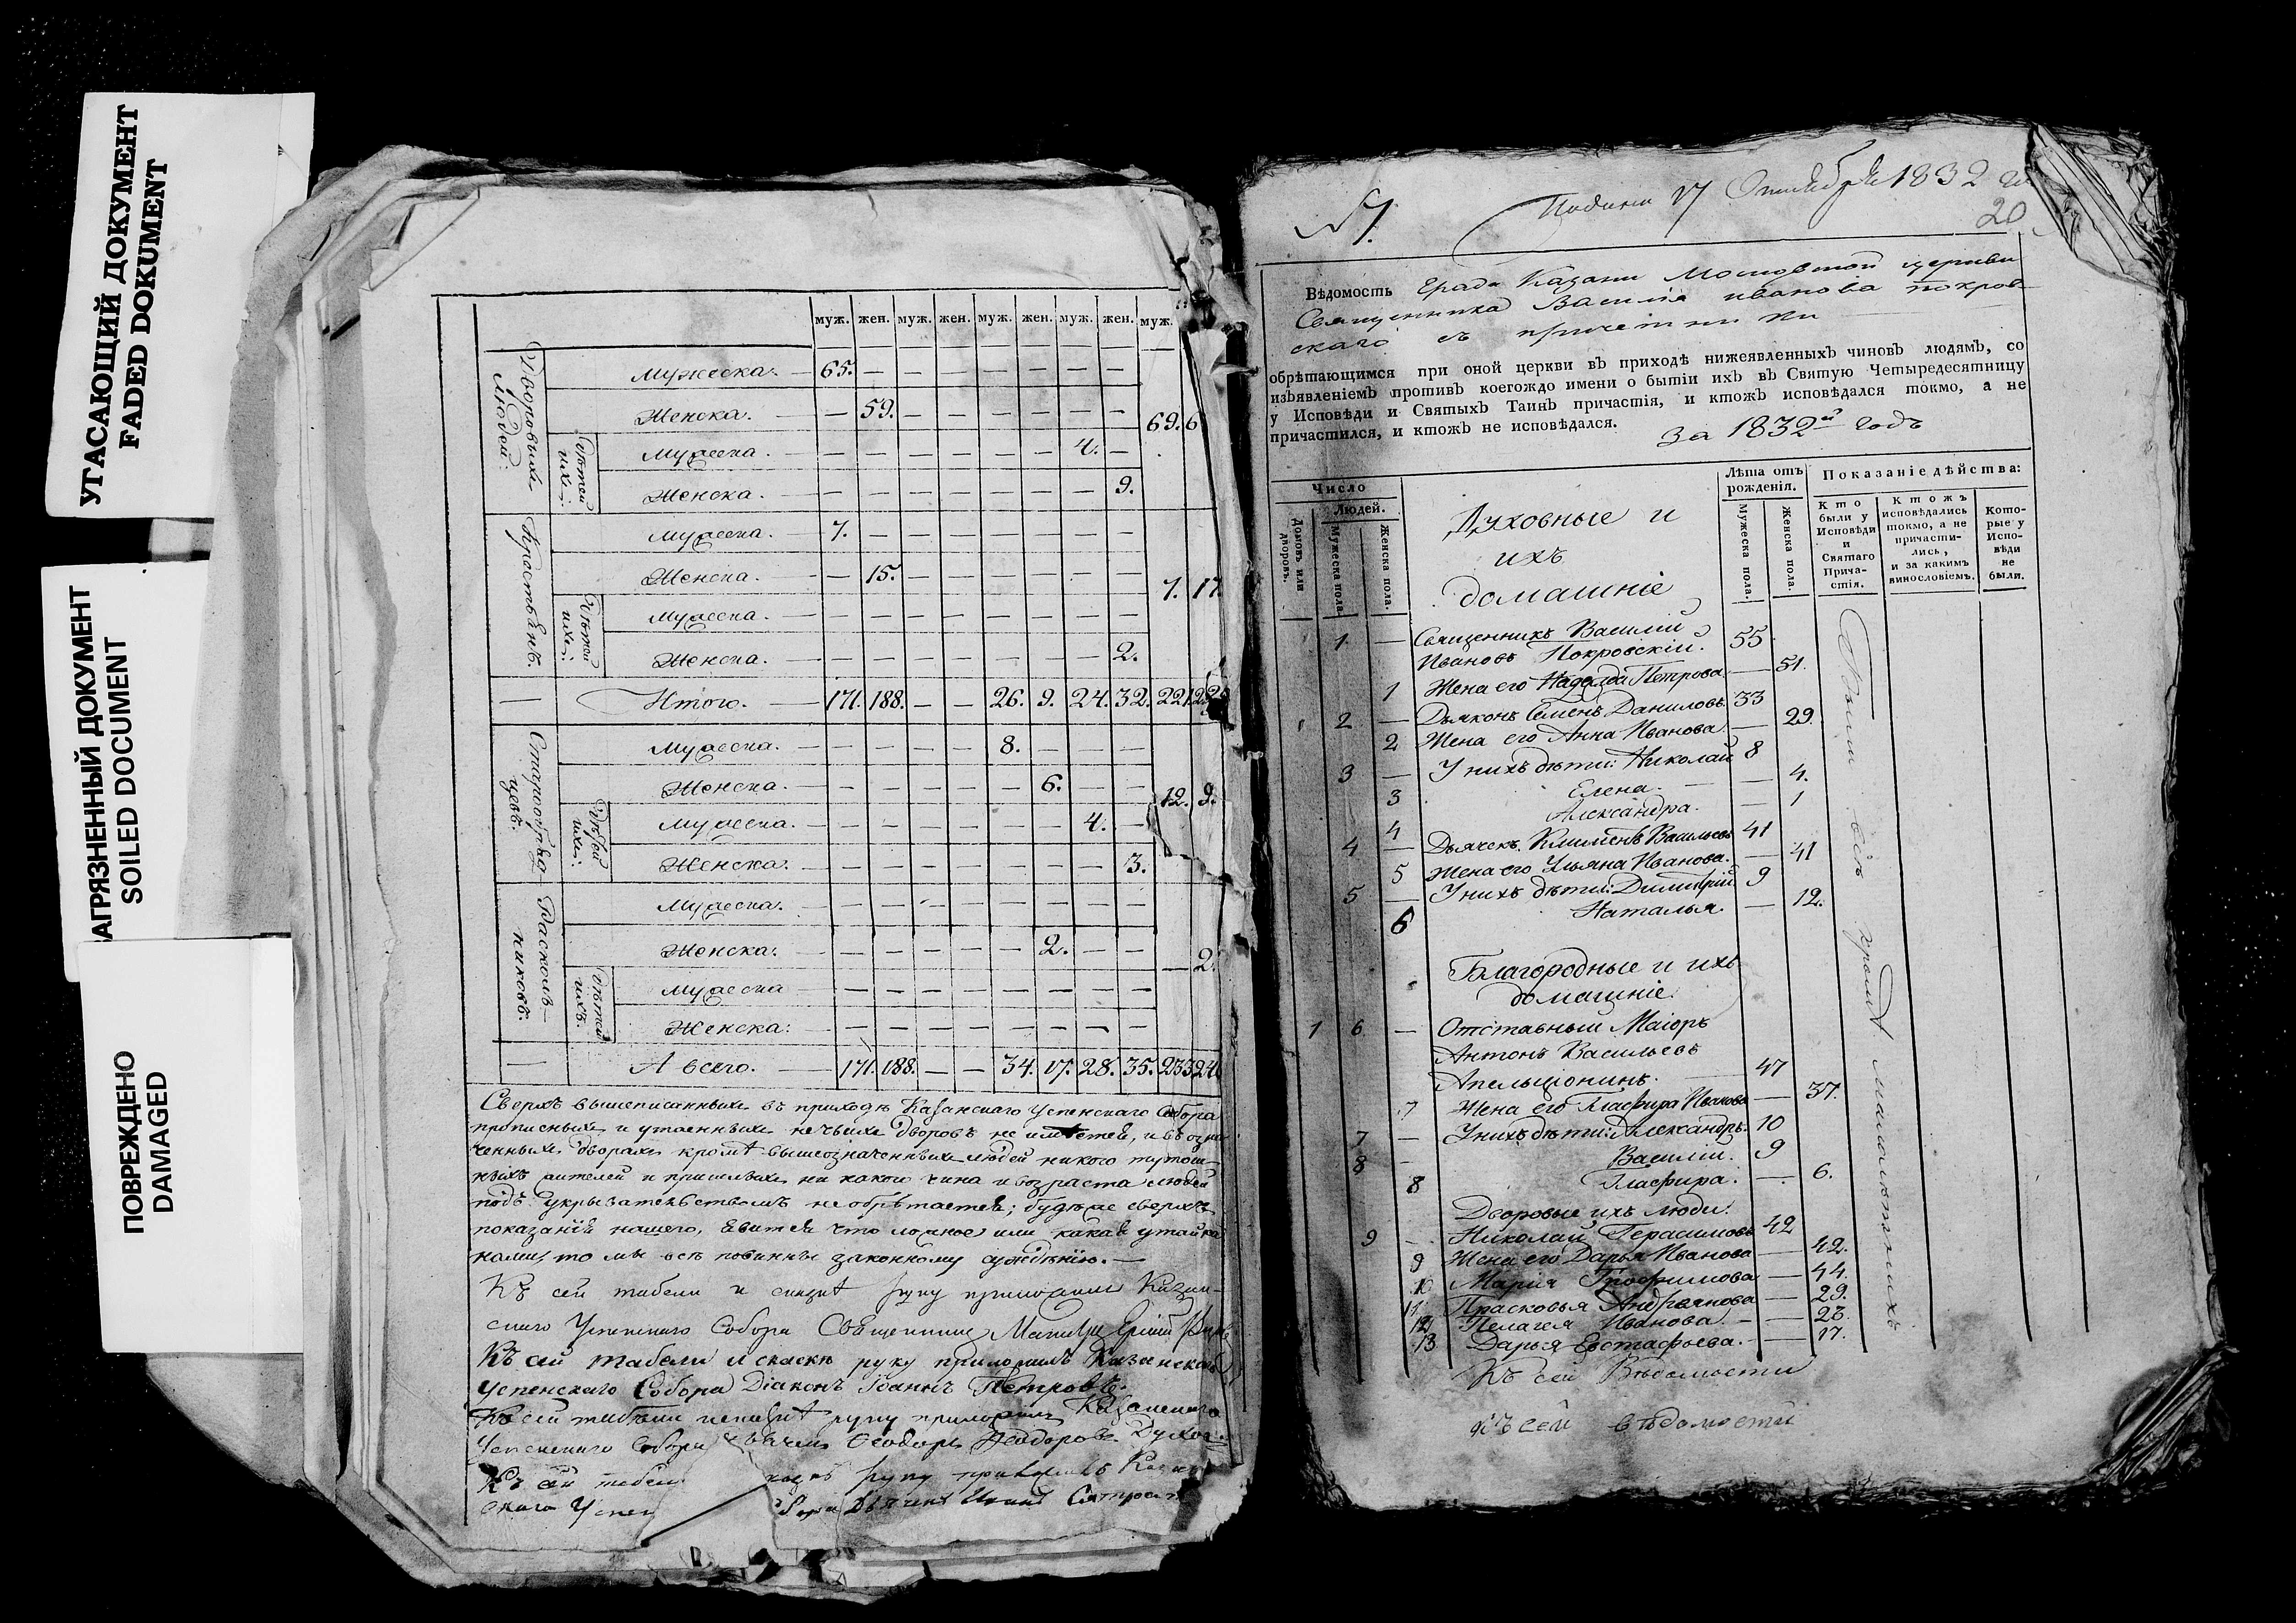 УГАСАЮЩИЙ ДОКУМЕНТ
FADED DOKUMENT
ЗАГРЯЗНЕННЫЙ ДОКУМЕНТ
SOILED DOCUMENT
ПОВРЕЖДЕНО
DAMAGED
муж. жен. муж. жен. муж. жен. муж. жен. муж.
Дворовыхъ Людей:
Мужеска. — 65. — — — — — — —
Женска. — — 59. — — — — — —
69. 6
Дѣтей ихъ:
Мужеска. — — — — — — — 4. —
Женска. — — — — — — — — 9.
Крестьянъ.
Мужеска. — 7. — — — — — — —
Женска. — — 15. — — — — — —
7. 17.
Дѣтей ихъ:
Мужеска. — — — — — — — — —
Женска. — — — — — — — — 2.
— Итого. — 171. 188. — — 26. 9. 24. 32. 221.
Старообрядцевъ.
Мужеска. — — — — — 8. — — —
Женска. — — — — — — 6. — —
12. 9.
Дѣтей ихъ:
Мужеска. — — — — — — — 4. —
Женска. — — — — — — — — 3.
Раскольниковъ.
Мужеска. — — — — — — — —
Женска. — — — — — 2. — —
— 2.
Дѣтей ихъ:
Мужеска — — — — — — — —
Женска: — — — — — — — —
— А всего. — 171. 188. — — 34. 17. 28. 35. 233
Сверхъ вышеписанныхъ въ приходѣ Казанскаго Успенскаго Собора
прописныхъ и утаенныхъ ничьихъ дворовъ не имѣется, и въ озна
ченныхъ дворахъ кромѣ вышеозначенныхъ людей никого тутош
ныхъ жителей и пришлыхъ ни какого чина и возраста людей
подъ укрывательствомъ не обрѣтается; будеже сверхъ
показанія нашего, явится что ложное или какая утайка
нами, то мы всѣ повинны законному сужденію. —
Къ сей табели и сказкѣ руку приложилъ Казан-
скаго Успенскаго Собора Священникъ
Къ сей табели и сказкѣ руку приложилъ Казанскаго
Успенскаго Собора Діаконъ Іоаннъ Петровъ.
Къ сей табели и сказкѣ руку приложилъ Казанскаго
Успенскаго Собора Дьячекъ Ѳеодоръ Ѳеодоровъ
Къ сей табели руку приложилъ
скаго Успен Дьячекъ
№7.
Подана 17 Октября 1832 го
20
Вѣдомость Града Казани Мосновской церкви
Священника Василія Иванова Покров-
скаго съ причетники
обрѣтающимся при оной церкви въ приходѣ нижеявленныхъ чиновъ людямъ, со
изъявленіемъ противъ коегождо имени о бытіи ихъ въ Святую Четыредесятницу
у Исповѣди и Святыхъ Таинъ причастія, и ктожъ исповѣдался токмо, а не
причастился, и ктожъ не исповѣдался.
за 1832й годъ
Число
Людей.
Домовъ или дворовъ.
Мужеска пола.
Женска пола.
Духовные и
ихъ
домашніе
Лѣта отъ рожденія.
Мужеска пола.
Женска пола.
Показаніе дѣйства:
Кто были у Исповѣди и Святаго Причастія.
Ктожъ исповѣдались токмо, а не причастились, и за какимъ винословіемъ.
Которые у Исповѣди не были.
1 — Священникъ Василій
Ивановъ Покровскій. 55
1 Жена его Надежда Петрова — 51.
2 — Дьяконъ Семенъ Даниловъ. 33
2 Жена его Анна Иванова. — 29.
3 — У нихъ дѣти: Николай 8
3 Елена. — 4.
4 Александра. — 1
4 — Дьячекъ Климентъ Васильевъ 41
5 Жена его Ульяна Иванова. — 41
5 — У нихъ дѣти: Димитрій 9
6 Наталья. — 12.
Благородные и ихъ
домашніе.
1 6 — Отставный Маіоръ
Антонъ Васильевъ
Апельціонинъ. 47
7 Жена его Глафира Иванова — 37.
7 — У нихъ дѣти: Александръ. 10
8 — Василій. 9
8 Глафира. — 6.
Дворовые ихъ люди:
9 — Николай Герасимовъ 42
9 Жена его Дарья Иванова — 42.
10 Марія Трофимова — 44.
11 Прасковья Андреянова — 29.
12 Пелагея Иванова. — 23.
13 Дарья Евстафьева. — 17.
Были всѣ кромѣ малолѣтнихъ
Къ сей Вѣдомости
къ сей вѣдомости